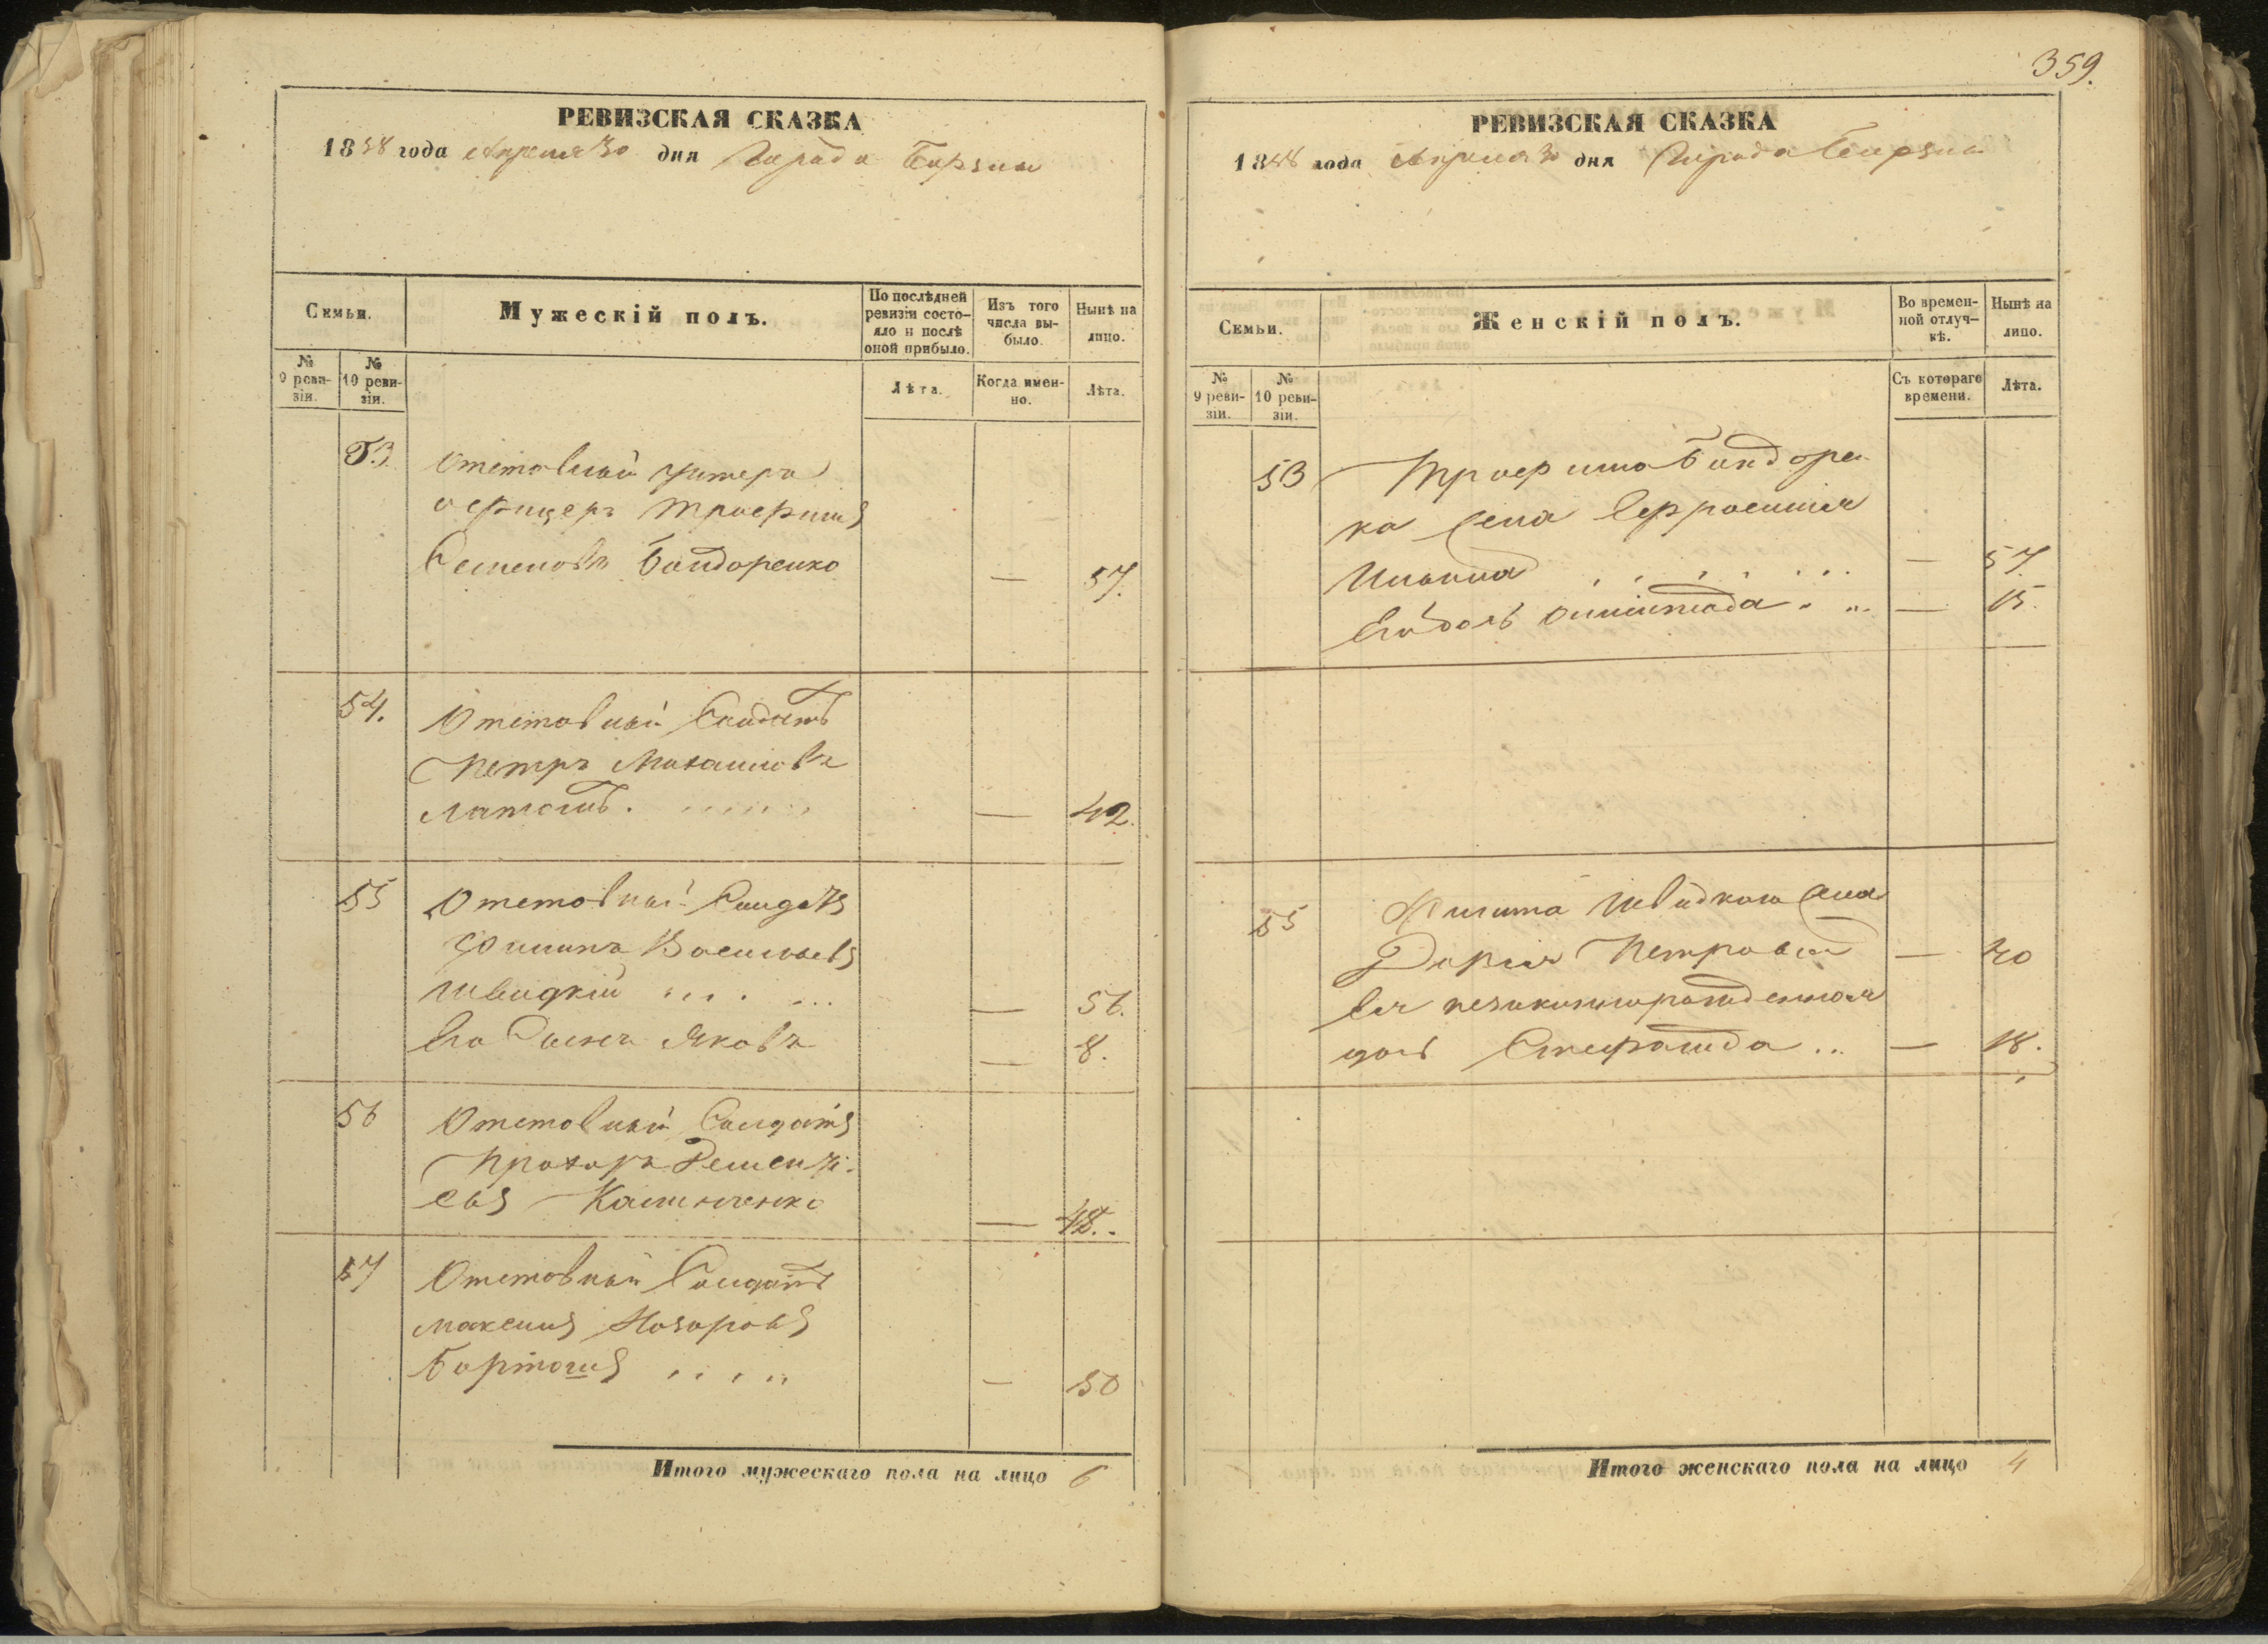 РЕВИЗСКАЯ СКАЗКА
1858 года Апреля 30 дня Города Борзны
Семьи.
Мужескій полъ.
По послѣдней ревизіи состо-
яло и послѣ
оной прибыло.
Изъ того
числа вы-
было.
Нынѣ на
лицо.
№
9 реви-
зіи.
№
10 реви-
зіи.
Лѣта.
Когда имен-
но.
Лѣта.
53
Отставный Унтеръ
офицеръ Трофимъ
Семеновъ Бондоренко — 57.
54. Отставный Солдатъ
Петръ Михаиловъ
— 42.
55 Отставный Солдатъ
Филипъ Васильевъ
Швидкій — 56.
Его Сынъ Яковъ — 8.
56 Отставный Солдатъ
Прохоръ Дементі-
евъ Калиниченко — 48.
57 Отставный Солдатъ
Максимъ Назаровъ
— 50
Итого мужескаго пола на лицо 6
359.
РЕВИЗСКАЯ СКАЗКА
1858 года Апреля 30 дня Города Борзны
Семьи.
Женскій полъ.
Во времен-
ной отлуч-
кѣ.
Нынѣ на
лицо.
№
9 реви-
зіи.
№
10 реви-
зіи.
Съ котораго
времени.
Лѣта.
53 Трофима Бондорен-
ка жена Ефросинія
— 57.
Его дочь — 15.
55 Филипа Швидкого жена
Дарія Петрова — 40
Ея незаконнорожденная
дочь Степанида — 18.
Итого женскаго пола на лицо 4